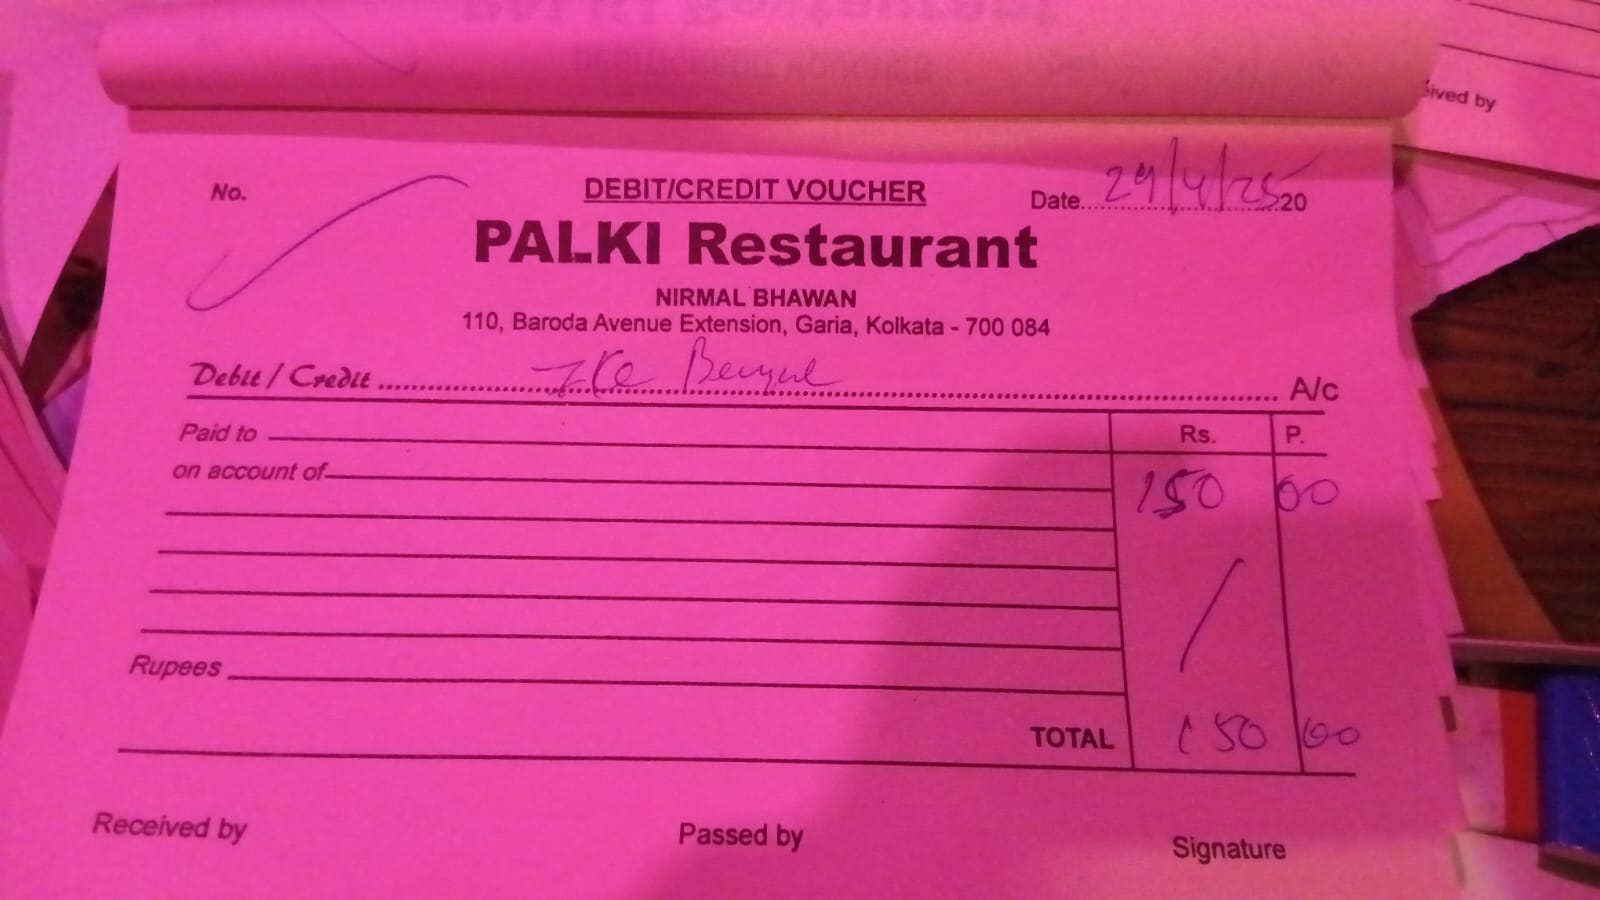 ived by
No.
DEBIT/CREDIT VOUCHER
Date 29/4/25 20
PALKI Restaurant
NIRMAL BHAWAN
110, Baroda Avenue Extension, Garia, Kolkata - 700 084
Debit / Credit A/c
Paid to Rs. P.
on account of 150 00
/
Rupees
TOTAL 150 00
Received by Passed by Signature